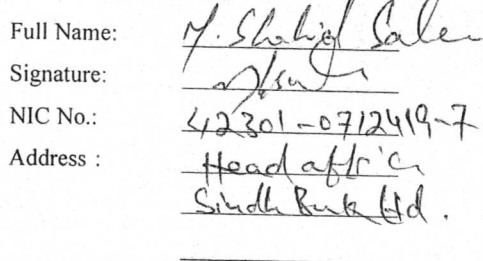 Full Name: M. Shahid Saleem
Signature:
NIC No.: 42301-0712419-7
Address : Head office
Sindh Bank Ltd.